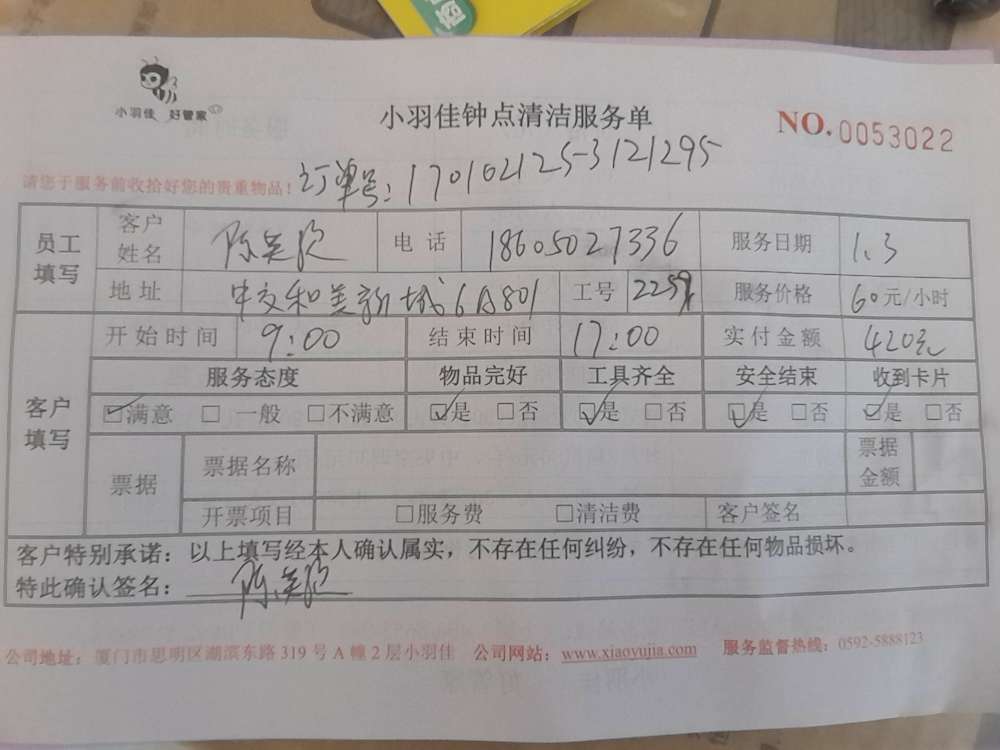 政
小羽佳 好管家
小羽佳钟点清洁服务单
NO.0053022
订单号:170102125-3121295
请您于服务前收拾好您的贵重物品!
员工填写 客户姓名 陈美欣 电话 18605027336 服务日期 1.3
地址 中交和美新城6A801 工号 2259 服务价格 60元/小时
客户填写 开始时间 9:00 结束时间 17:00 实付金额 420元
服务态度 物品完好 工具齐全 安全结束 收到卡片
☑满意 □一般 □不满意 ☑是 □否 ☑是 □否 ☑是 □否 ☑是 □否
票据 票据名称 票据金额
开票项目 □服务费 □清洁费 客户签名
客户特别承诺:以上填写经本人确认属实,不存在任何纠纷,不存在任何物品损坏。
特此确认签名: 陈美欣
公司地址:厦门市思明区湖滨东路319号A幢2层小羽佳 公司网站:www.xiaoyujia.com 服务监督热线:0592-5888123